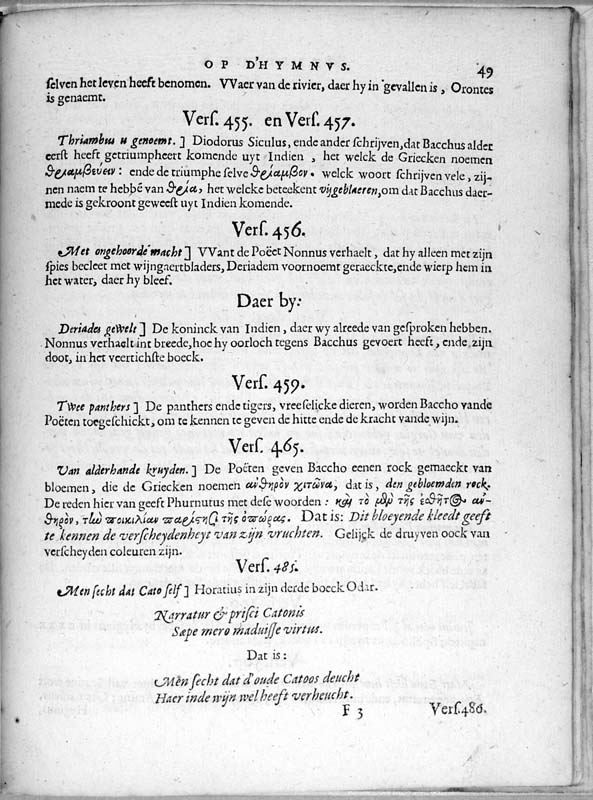 OP D'HYMNVS. 49
selven het leven heeft benomen. VVaer van de rivier, daer hy in gevallen is, Orontes
is genaemt.
Vers. 455. en Vers. 457.
Thriambus u genoemt. ] Diodorus Siculus, ende ander schrijven, dat Bacchus alder
eerst heeft getriumpheert komende uyt Indien, het welck de Griecken noemen
θριαμβεύειν: ende de triumphe selve θρίαμβον. welck woort schrijven vele, zij-
nen naem te hebbē van θρία, het welcke beteekent vijgeblaeren, om dat Bacchus daer-
mede is gekroont geweest uyt Indien komende.
Vers. 456.
Met ongehoorde macht ] VVant de Poëet Nonnus verhaelt, dat hy alleen met zijn
spies becleet met wijngaertbladers, Deriadem voornoemt geraeckte, ende wierp hem in
het water, daer hy bleef.
Daer by:
Deriades gewelt ] De koninck van Indien, daer wy alreede van gesproken hebben.
Nonnus verhaelt int breede, hoe hy oorloch tegens Bacchus gevoert heeft, ende zijn
doot, in het veertichste boeck.
Vers. 459.
Twee panthers ] De panthers ende tigers, vreeselicke dieren, worden Baccho vande
Poëten toegeschickt, om te kennen te geven de hitte ende de kracht vande wijn.
Vers. 465.
Van alderhande kruyden. ] De Poëten geven Baccho eenen rock gemaeckt van
bloemen, die de Griecken noemen ἀνθηρὸν χιτῶνα, dat is, den gebloemden rock.
De reden hier van geeft Phurnutus met dese woorden: καὶ τὸ μὲν τῆς ἐσθῆτος ἀν-
θηρὸν, τὴν ποικιλίαν παρίστησι τῆς ὀπώρας. Dat is: Dit bloeyende kleedt geeft
te kennen de verscheydenheyt van zijn vruchten. Gelijck de druyven oock van
verscheyden coleuren zijn.
Vers. 485.
Men secht dat Cato self ] Horatius in zijn derde boeck Odar.
Narratur & prisci Catonis
Sæpe mero maduisse virtus.
Dat is:
Men secht dat d'oude Catoos deucht
Haer inde wijn wel heeft verheucht.
F 3 Vers. 486.